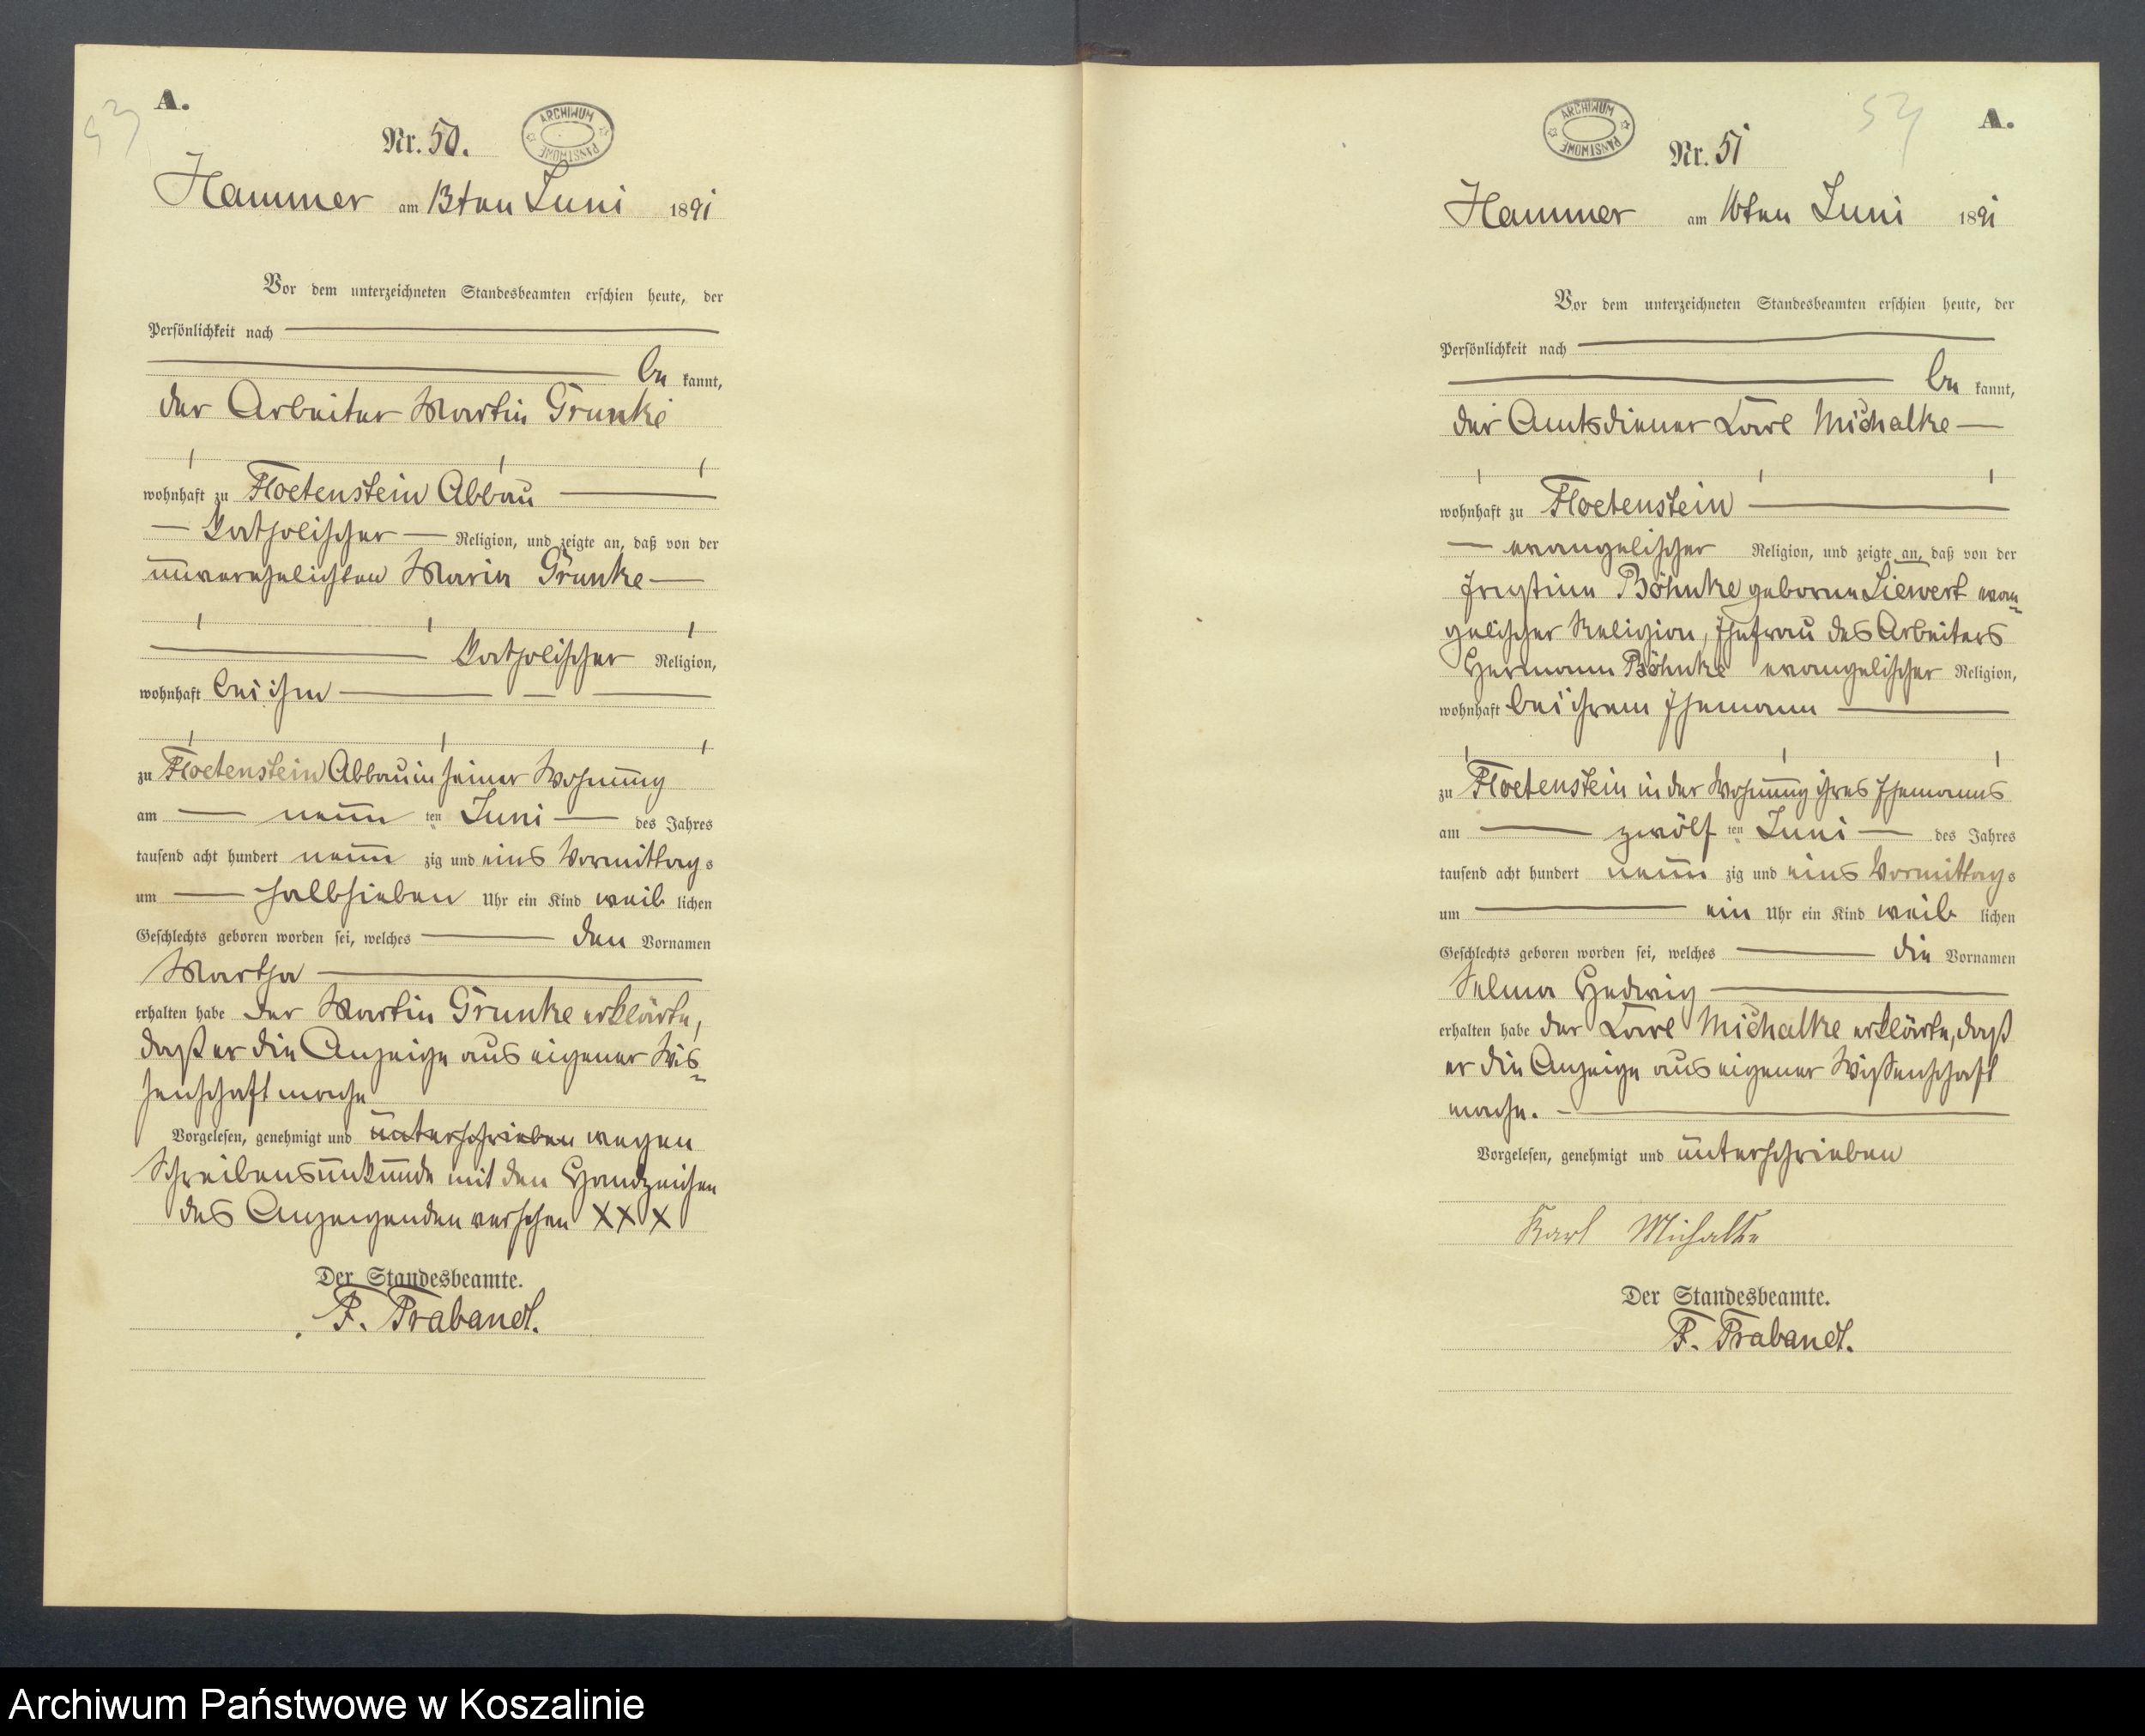 A.
53
Nr. 50.
ARCHIWUM PAŃSTWOWE
Hammer am 13ten Juni 1891
Vor dem unterzeichneten Standesbeamten erschien heute, der
Persönlichkeit nach
be kannt,
der Arbeiter Martin Grunke
wohnhaft zu Floetenstein Abbau
katholischer Religion, und zeigte an, daß von der
unverehelichten Maria Grunke
katholischer Religion,
wohnhaft bei ihm
zu Floetenstein Abbau in seiner Wohnung
am neun ten Juni des Jahres
tausend acht hundert neun zig und eins Vormittags
um halb sieben Uhr ein Kind weib lichen
Geschlechts geboren worden sei, welches den Vornamen
Martha
erhalten habe der Martin Grunke erklärte,
daß er die Anzeige aus eigener Wis-
senschaft mache
Vorgelesen, genehmigt und unterschrieben wegen
Schreibensunkunde mit den Handzeichen
des Anzeigenden versehen XXX
Der Standesbeamte.
F. Trabandt.
ARCHIWUM PAŃSTWOWE
54
A.
Nr. 51
Hammer am 16ten Juni 1891
Vor dem unterzeichneten Standesbeamten erschien heute, der
Persönlichkeit nach
be kannt,
der Amtsdiener Karl Michalke
wohnhaft zu Floetenstein
evangelischer Religion, und zeigte an, daß von der
Ernstine Böhnke geborne Siewert evan-
gelischer Religion, Ehefrau des Arbeiters
Hermann Böhnke evangelischer Religion,
wohnhaft bei ihrem Ehemann
zu Floetenstein in der Wohnung ihres Ehemanns
am zwölf ten Juni des Jahres
tausend acht hundert neun zig und eins Vormittags
um ein Uhr ein Kind weib lichen
Geschlechts geboren worden sei, welches die Vornamen
Selma Hedwig
erhalten habe der Karl Michalke erklärte, daß
er die Anzeige aus eigener Wißenschaft
mache.
Vorgelesen, genehmigt und unterschrieben
Karl Michalke
Der Standesbeamte.
F. Trabandt.
Archiwum Państwowe w Koszalinie